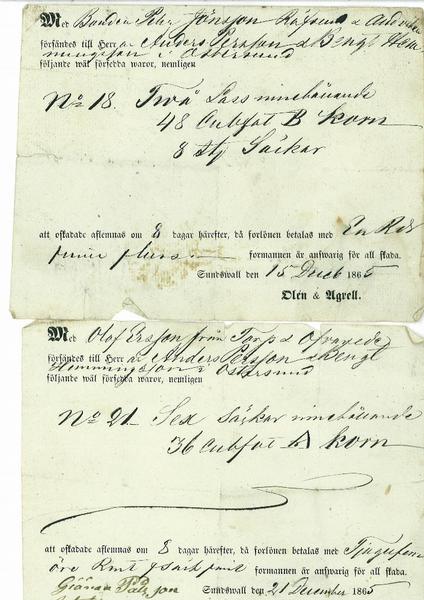 Med Bonden Pehr Jönsson
försändes till Herr ar Anders Persson & Bengt Hem
mingsson i Östersund
följande wäl försedda waror, nemligen
No 18. Två Lass innehållande
48 Cubfot B Korn
8 st Säckar
att oskadade aflemnas om 8 dagar härefter, då forlönen betalas med En Rdr
formannen är answarig för all skada.
Sundswall den 15 Decb 1865
Olén & Agrell.
Med Olof Ersson från Torp &
försändes till Herr ar Anders Persson & Bengt
Hemmingsson i Östersund
följande wäl försedda waror, nemligen
No 21 Sex Säckar innehållande
36 Cubfot Korn
att oskadade aflemnas om 8 dagar härefter, då forlönen betalas med Tjugufem
öre Rmt formannen är answarig för all skada.
Sundswall den 21 December 1865